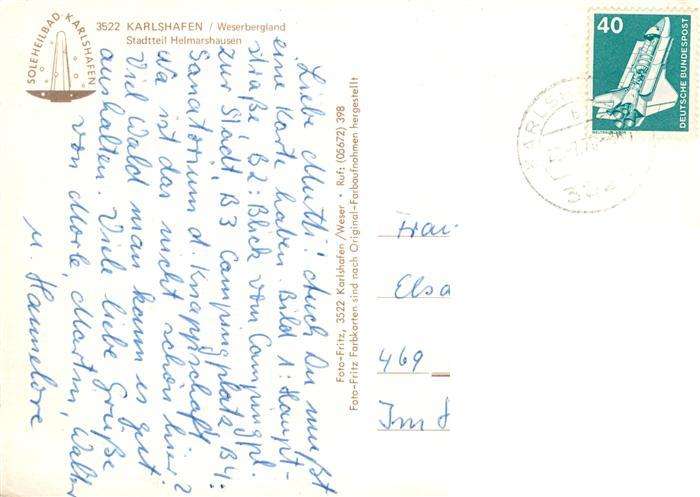 SOLEHEILBAD KARLSHAFEN
3522 KARLSHAFEN / Weserbergland
Stadtteil Helmarshausen
40
DEUTSCHE BUNDESPOST
Liebe Mutti! Auch Du mußt
eine Karte haben. Bild 1: Haupt-
straße B2: Blick vom Campingpl.
zur Stadt, B3 Campingplatz B4:
Sanatorium d. Knappschaft
Na ist das nicht schön hier?
Viel Wald man kann es gut
aushalten. Viele liebe Grüße
von Marle, Martin, Walter
u. Hannelore
Foto-Fritz, 3522 Karlshafen/Weser · Ruf: (05672) 398
Foto-Fritz Farbkarten sind nach Original-Farbaufnahmen hergestellt
Frau
Elsa
469
Im